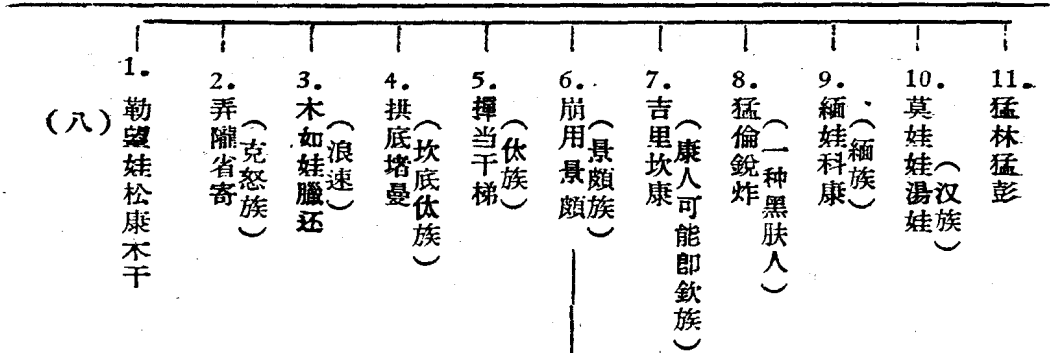 （八）
1. 勒望娃松康木干
2. 弄隴省寄
（克怒族）
3. 木如娃臘还
（浪速）
4. 拱底堵曼
（坎底伕族）
5. 撣当干梯
（伕族）
6. 崩用景頗
（景頗族）
7. 吉里坎康
（康人可能卽欽族）
8. 猛倫銳炸
（一种黑肤人）
9. 緬娃科康
（緬族）
10. 莫娃娃湯娃
（汉族）
11. 猛林猛彭